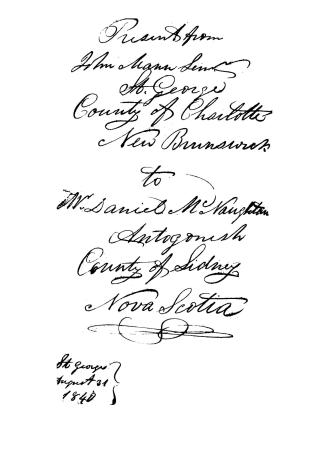 Present from
John Mann Senr
St. George
County of Charlotte
New Brunswick
to
Mr. Daniel McNaughtan
Antogonish
County of Sidney
Nova Scotia
St George
August 31
1840